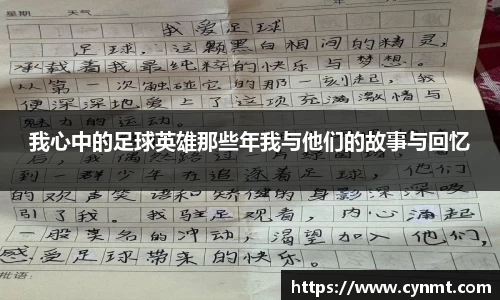 星期 天气
我爱足球
足球，这颗黑白相间的精灵，
承载着我最纯粹的快乐与梦想。
从第一次触碰它的那一刻起，我
便深深地爱上了这项充满激情与
魅力的运动。
我心中的足球英雄那些年我与他们的故事与回忆
到一群少年在追逐着足球，他们
的欢声笑语和矫健的身影深深吸
引了我。我驻足观看，内心涌起
一股莫名的冲动，渴望加入他们，
感受足球带来的快乐。
批语：
https://www.cynmt.com